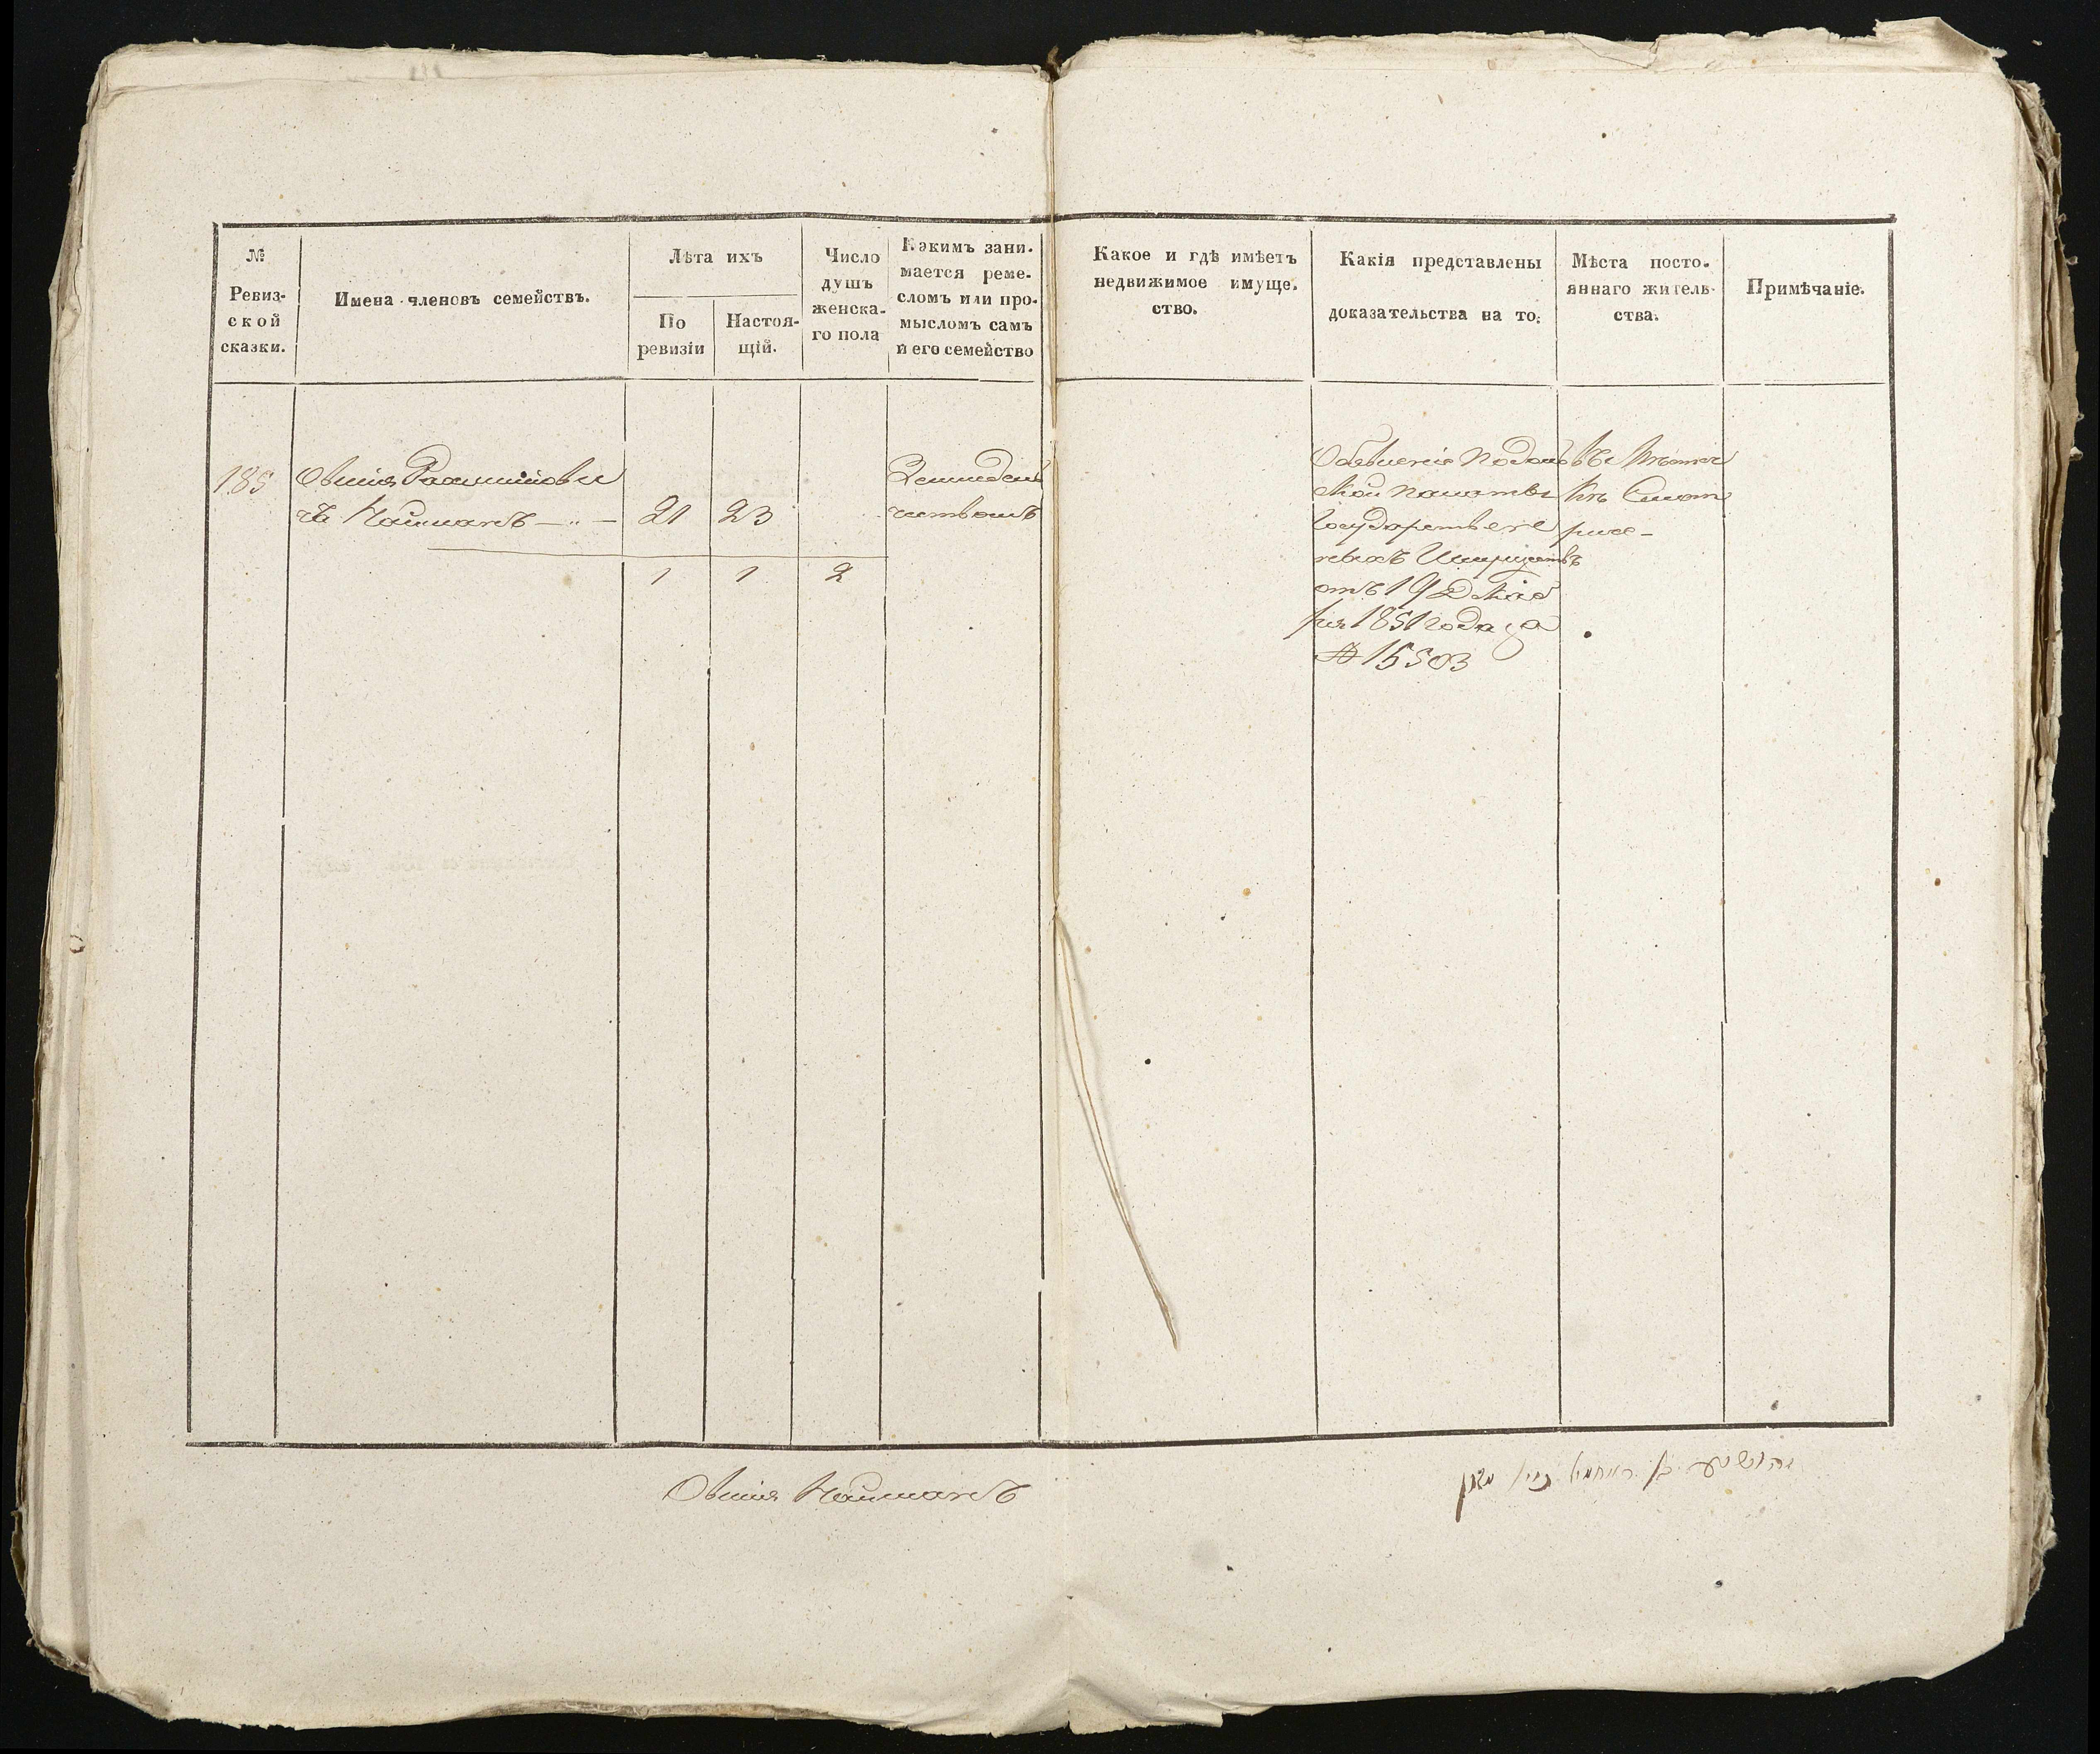 №
Ревиз-
ской
сказки.
Имена членовъ семействъ.
Лѣта ихъ
По
ревизіи
Настоя-
щій.
Число
душъ
женска-
го пола
Какимъ зани-
мается реме-
сломъ или про-
мысломъ самъ
и его семейство
Какое и гдѣ имѣетъ
недвижимое имуще-
ство.
Какія представлены
доказательства на то.
Мѣста посто-
яннаго житель-
ства.
Примѣчаніе.
185
Овшія
чъ Найманъ
21
23
1
1
2
Земледель
чествомъ
Объвленіе Подоль
ской палаты
Государствен
ныхъ Имуществъ
отъ 19 Декаб
ря 1851 года за
№ 15503
въ
къ Смот
риче
Овшія Найманъ
יהושע בן ירחמיאל